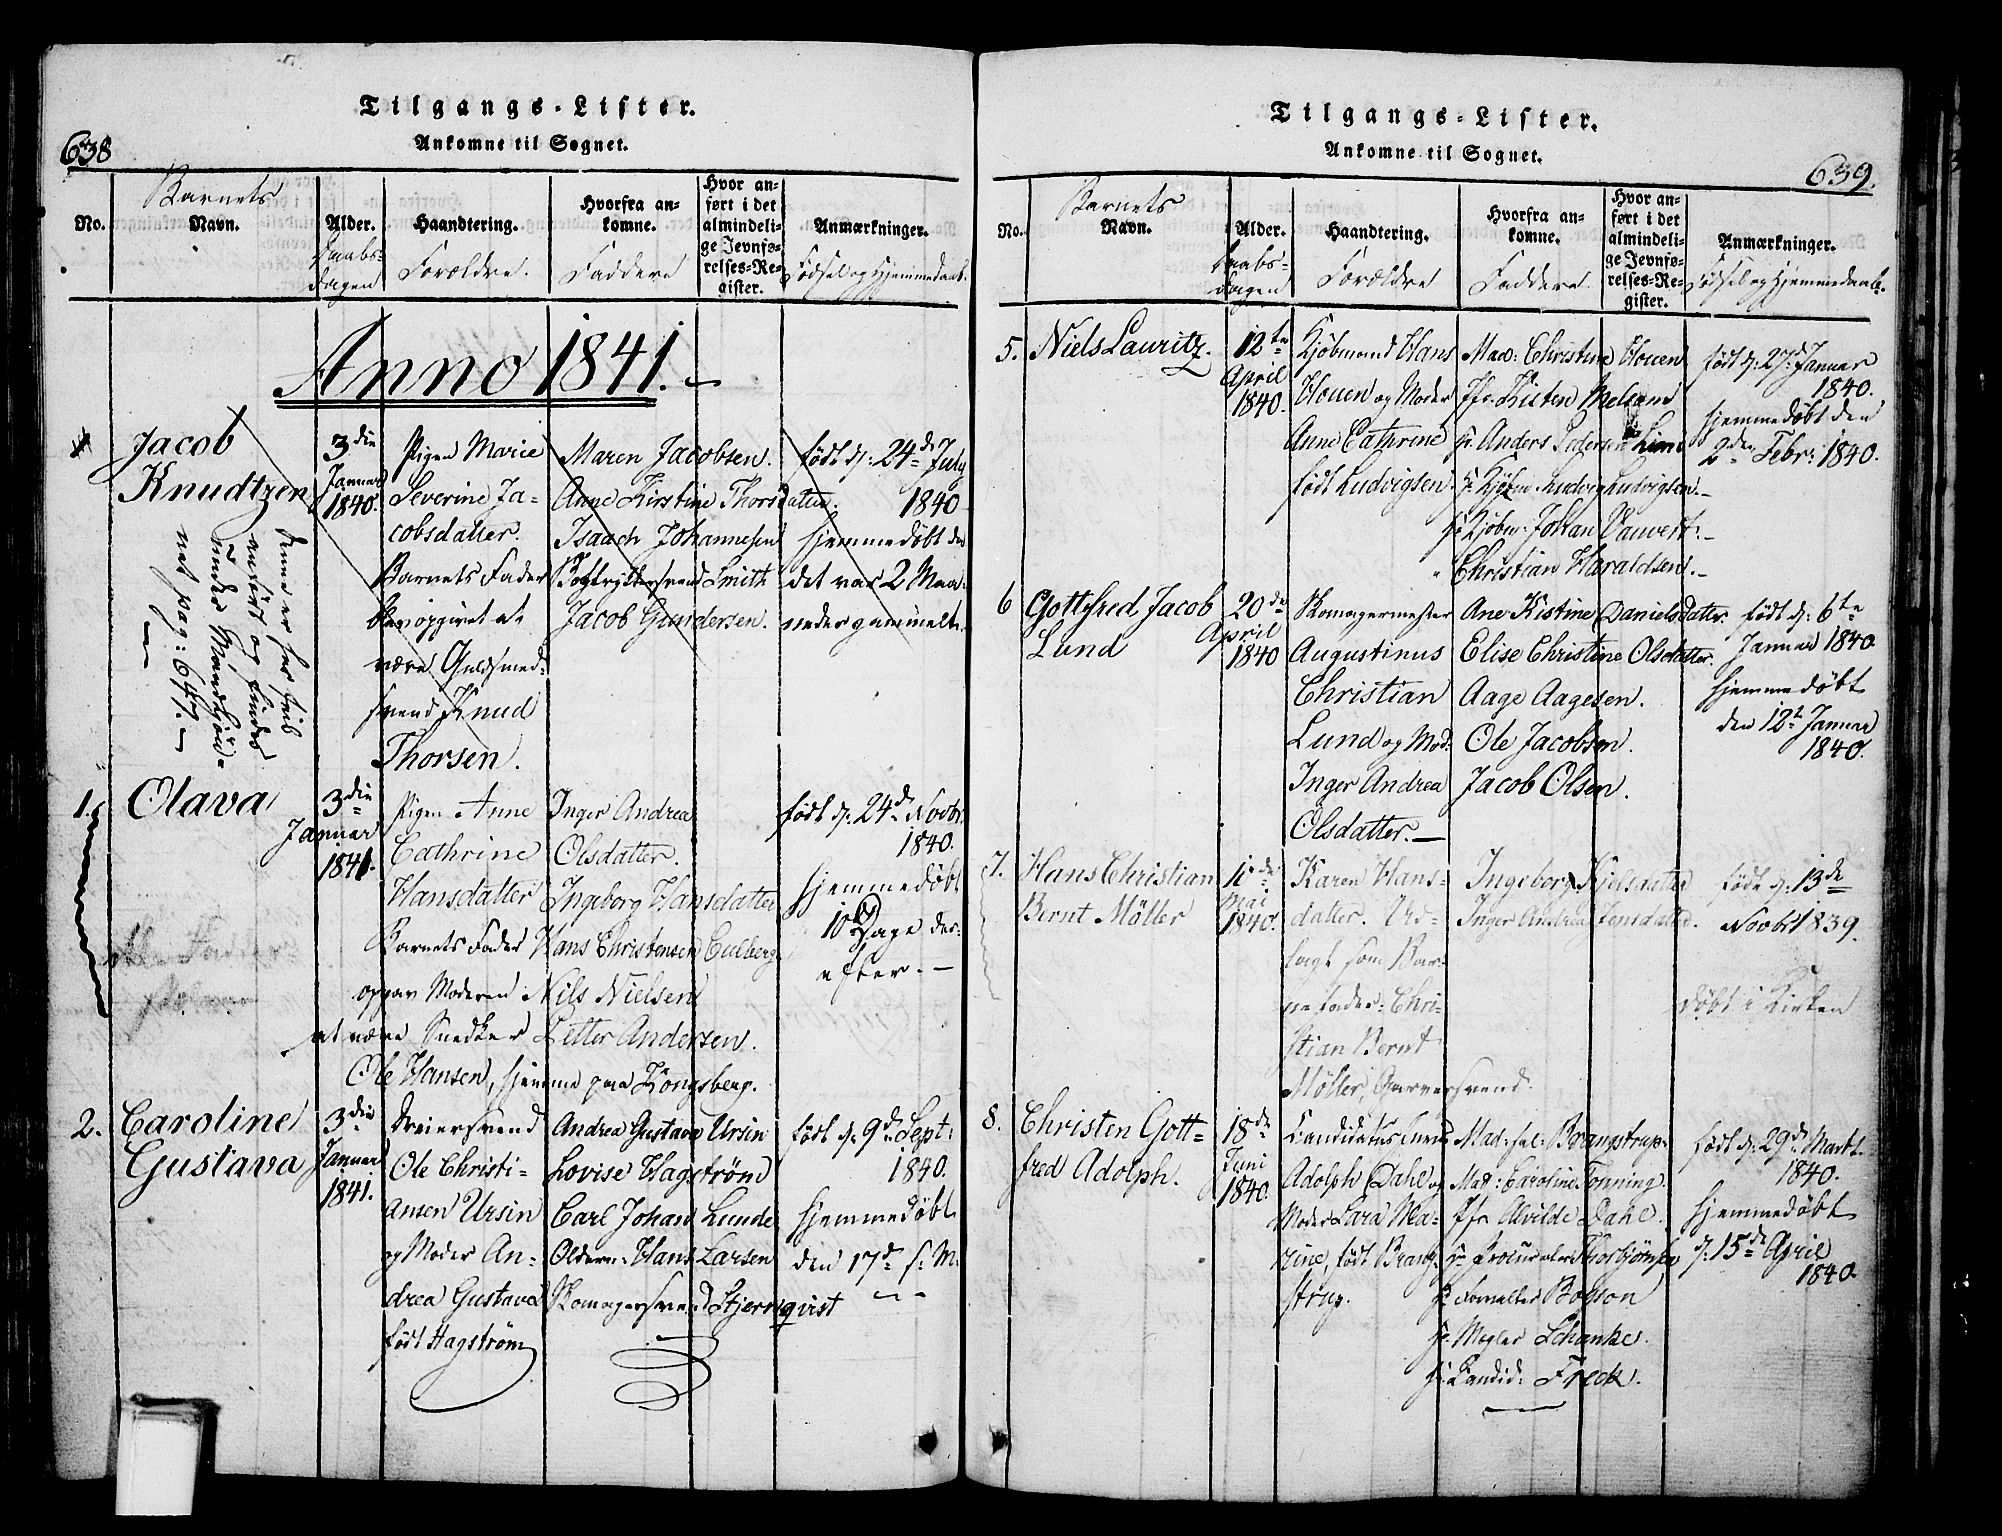 638
Tilgangs-Lister.
Ankomne til Sognet.
No.
Barnets
Navn.
Alder.
Daabs-
dagen
Haandtering.
Forældre.
Hvorfra an-
komne.
Faddere
Hvor an-
ført i det
almindeli-
ge Jevnfø-
relses-Re-
gister.
Anmærkninger.
Fødsel og Hjemmedaab.
Anno 1841.
Jacob
Knudtzen
denne er her feil
anført og findes
under Mandkjøn-
net pag: 647.
3die
Januar
1840.
Pigen Marie
Severine Ja-
cobsdatter.
Barnets Fader
blev opgivet at
være Guldsmed-
svend Knud
Thorsen.
Maren Jacobsen.
Anne Kirstine Thorsdatter.
Isaach Johannesen
Bogtrykkersvend Smith
Jacob Gundersen.
født d: 24de July
1840
hjemmedøbt da
det var 2 Maa-
neder gammelt.
1.
Olava
3die
Januar
1841.
Pigen Anne
Cathrine
Hansdatter
Barnets Fader
opgav Moderen
at være Snedker
Ole Hansen, hjemme paa Kongsberg.
Inger Andrea
Olsdatter.
Ingeborg Hansdatter
Hans Christensen Eulberg
Nils Nielsen
Petter Andersen.
født d: 24de Novbr.
1840.
hjemmedøbt
10 Dage der-
efter.
2.
Caroline
Gustava
3die
Januar
1841.
Dreiersvend
Ole Christi-
ansen Ursin
og Moder An-
drea Gustava
født Hagstrøm
Andrea Gustava Ursin
Lovise Hagstrøm
Carl Johan Lunde
Olderm: Hans Larsen
Skomagersvend Stjernqvist
født d: 9de Sept:
1840.
hjemmedøbt
den 17de s: M:
639.
Tilgangs-Lister.
Ankomne til Sognet.
No.
Barnets
Navn.
Alder.
Daabs-
dagen
Haandtering.
Forældre
Hvorfra an-
komne.
Faddere.
Hvor an-
ført i det
almindeli-
ge Jevnfø-
relses-Re-
gister.
Anmærkninger.
Fødsel og Hjemmedaab.
5.
Niels Lauritz.
12te
April
1840.
Kjøbmand Hans
Houen og Moder
Anne Cathrine
født Ludvigsen.
Mad: Christine Houen
Jfr: Kisten Melsom
Hr: Anders Pedersen Lund
Christian Haraldsen.
født d: 27de Januar
1840.
hjemmedøbt den
2den Febr: 1840.
6
Gottfred Jacob
Lund
20de
April
1840
Skomagermester
Augustinus
Christian
Lund og Mod:
Inger Andrea
Olsdatter.
Ane Kistine Danielsdatter
Elise Christine Olsdatter.
Aage Aagesen.
Ole Jacobsen.
Jacob Olsen.
født d: 6te
Januar 1840.
hjemmedøbt
den 12te Januar
1840.
7.
Hans Christian
Bernt Möller
10de
Mai
1840.
Karen Hans-
datter. Ud-
lagt som Bar-
nefader: Chri-
stian Bernt
Möller, Garversvend.
Ingeborg Kjelsdatter
Inger Andrea Jensdatter.
født d: 13de
Novbr 1839.
døbt i Kirken
8.
Christen Gott-
fred Adolph.
18de
Juni
1840.
Candidatus
Adolph Dahl og
Moder Sara Ma-
rine, født Brang-
strup.
Mad: Brangstrup.
Mad: Caroline Tonning.
Jfr Alvilde Dahl.
Hr Procurator Thorbjørnsen
Hr Megler Schanke.
Hr: Candid: Freck.
født d: 29de Marts
1840.
hjemmedøbt
d: 15de April
1840.